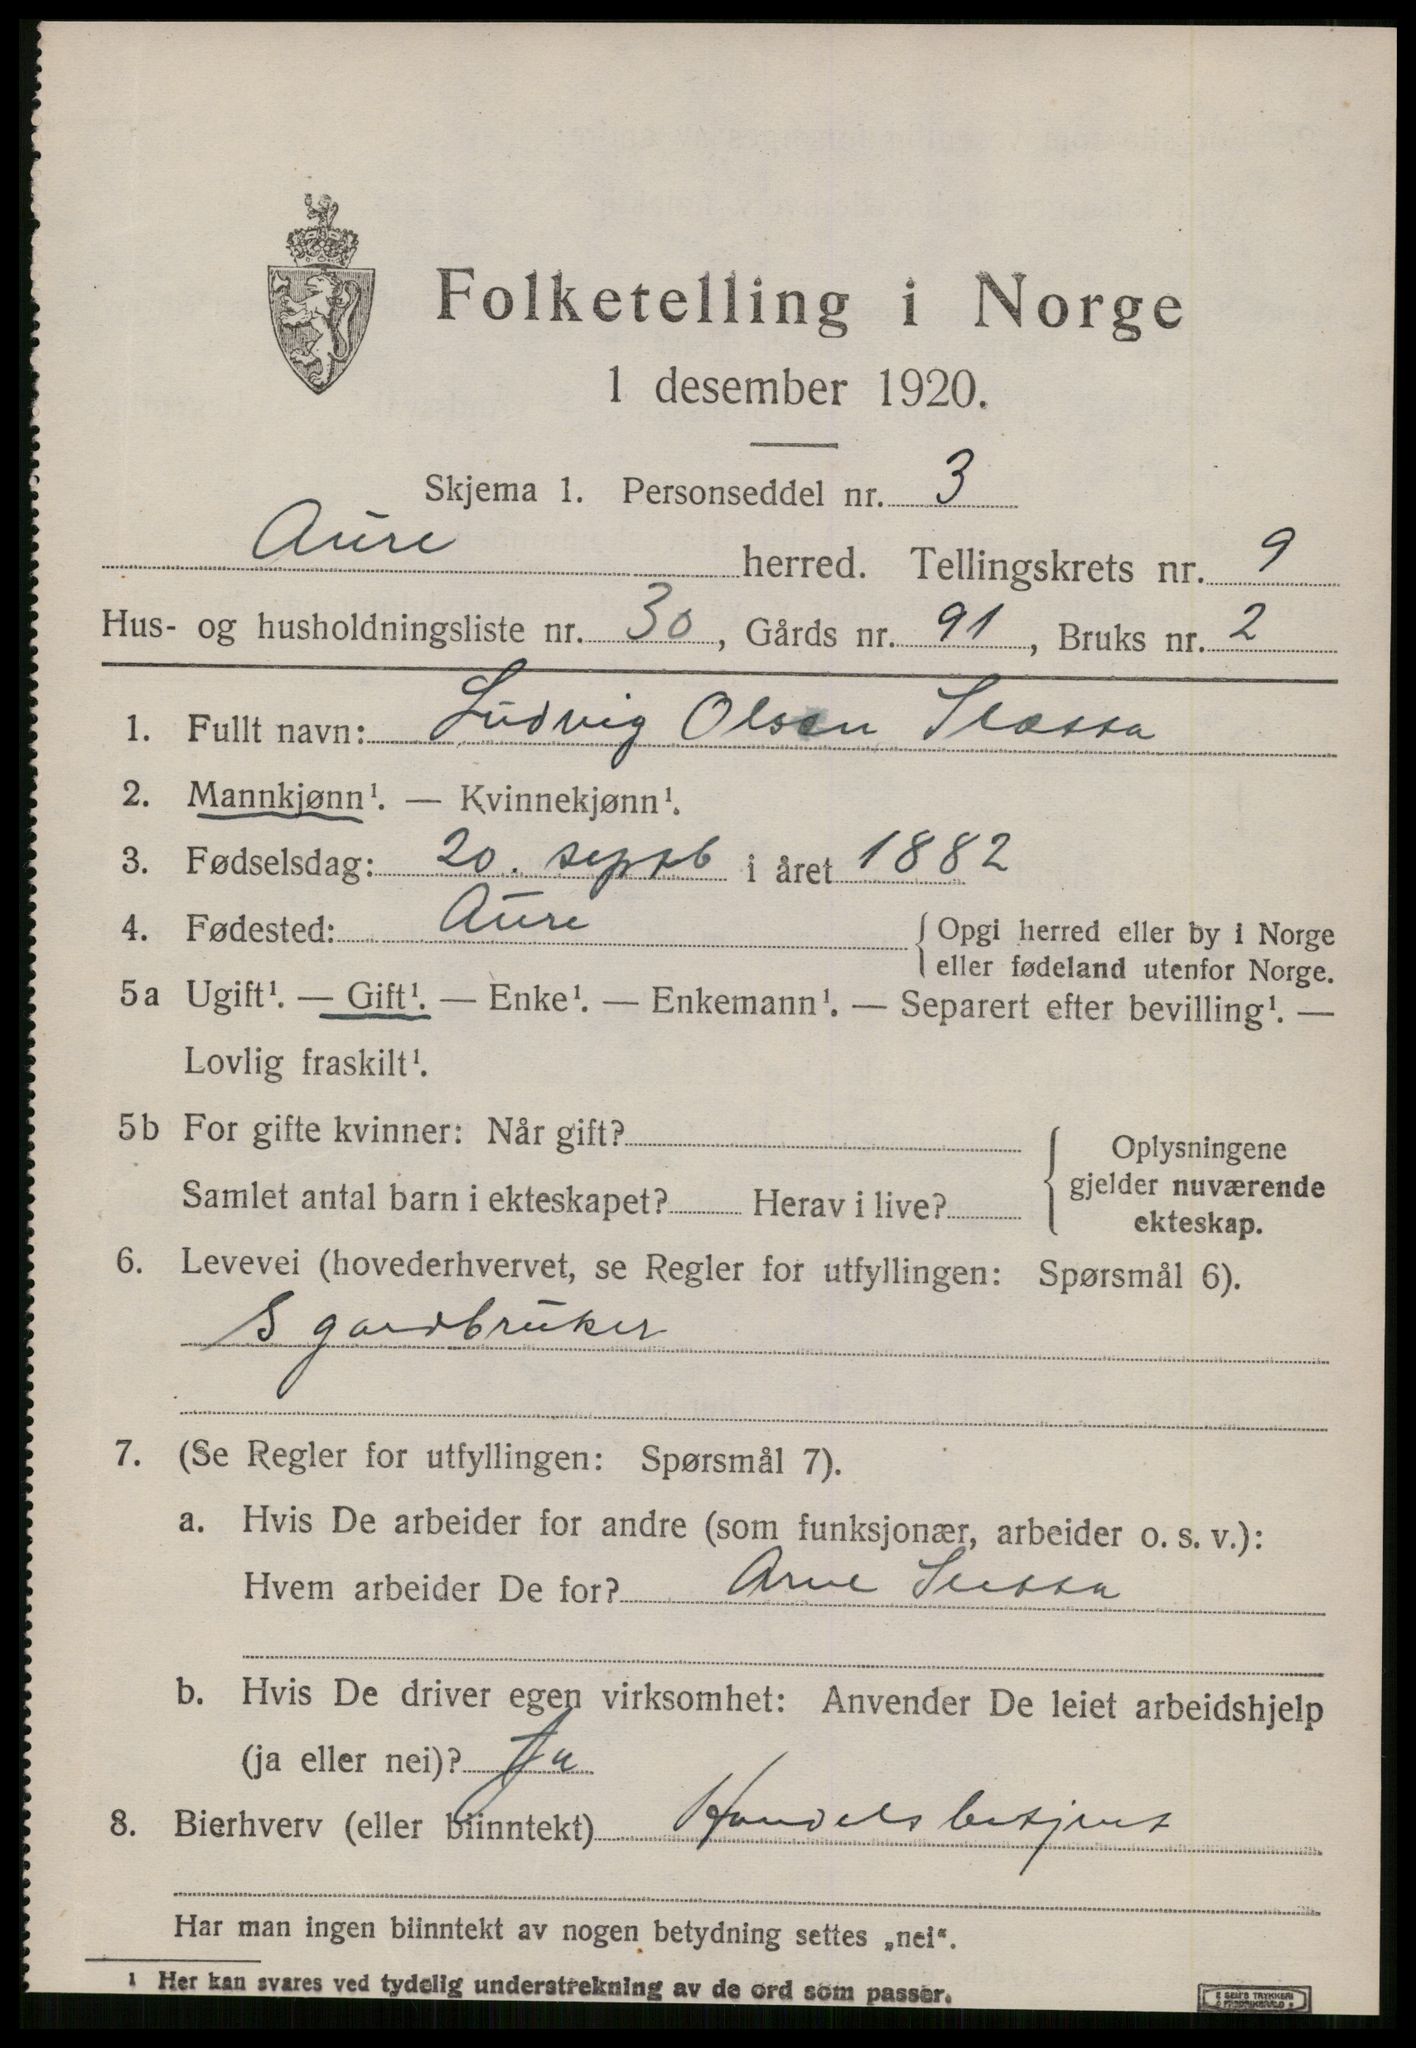 Folketelling i Norge
1 desember 1920.
Skjema 1. Personseddel nr. 3
Aure herred. Tellingskrets nr. 9
Hus- og husholdningsliste nr. 30, Gårds nr. 91, Bruks nr. 2
1. Fullt navn: Ludvig Olsen Slæssa
2. Mannkjønn¹. — Kvinnekjønn¹.
3. Fødselsdag: 20. septb i året 1882
4. Fødested: Aure { Opgi herred eller by i Norge
eller fødeland utenfor Norge.
5a Ugift¹. — Gift¹. — Enke¹. — Enkemann¹. — Separert efter bevilling¹. —
Lovlig fraskilt¹.
5b For gifte kvinner: Når gift?
Samlet antal barn i ekteskapet? Herav i live?
{ Oplysningene
gjelder nuværende
ekteskap.
6. Levevei (hovederhvervet, se Regler for utfyllingen: Spørsmål 6).
S gardbruker
7. (Se Regler for utfyllingen: Spørsmål 7).
a. Hvis De arbeider for andre (som funksjonær, arbeider o. s. v.):
Hvem arbeider De for? Arne
b. Hvis De driver egen virksomhet: Anvender De leiet arbeidshjelp
(ja eller nei)? Ja
8. Bierhverv (eller biinntekt) Handelsbetjent
Har man ingen biinntekt av nogen betydning settes „nei“.
¹ Her kan svares ved tydelig understrekning av de ord som passer.